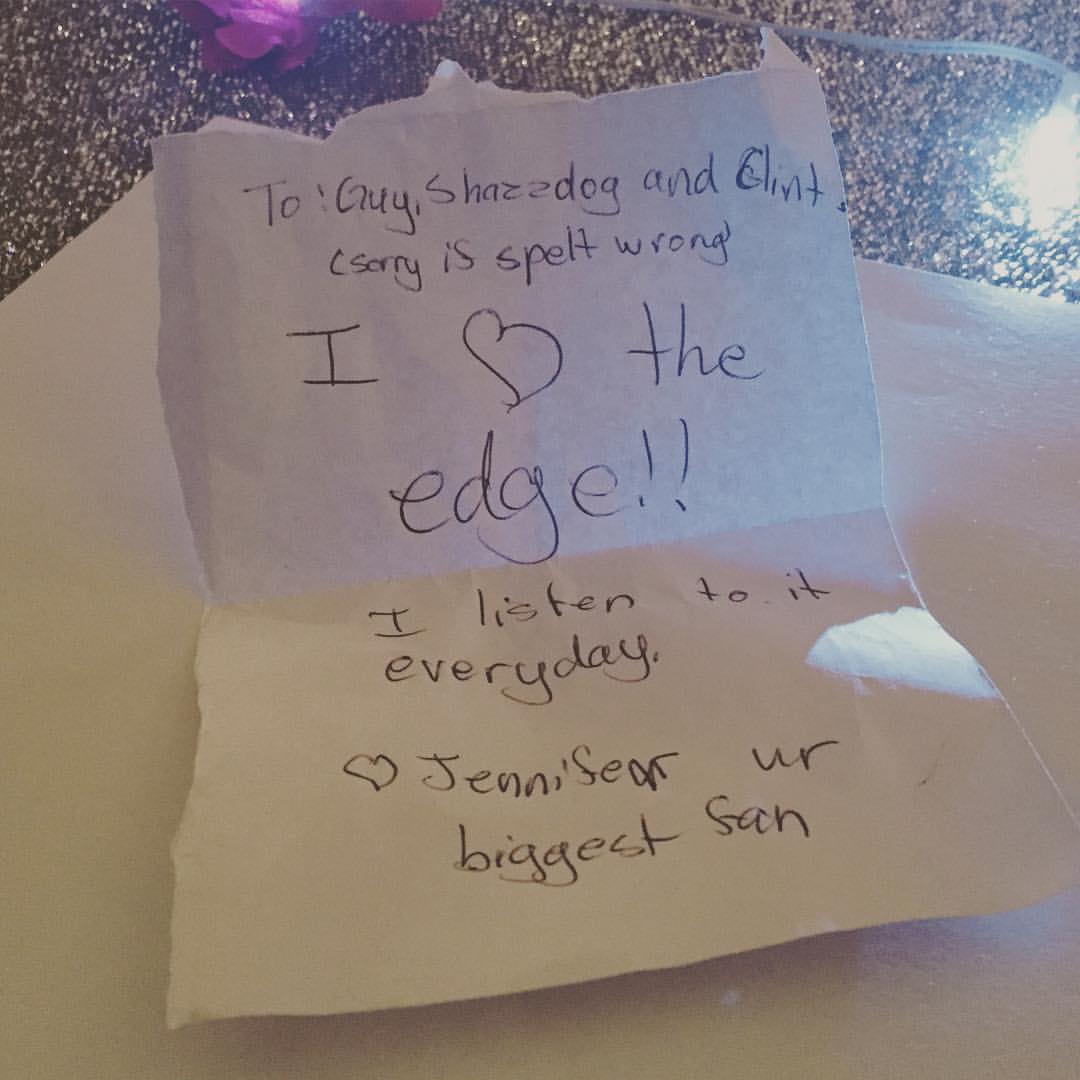 To: Guy, Shazzdog and Clint.
(sorry is spelt wrong)
I ♡ the
edge!!
I listen to it
everyday.
♡ Jennifear ur
biggest fan